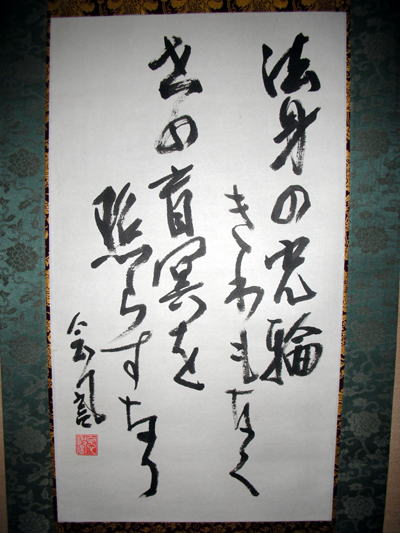 法身の光輪
きわもなく
世の盲冥を
照らすなり